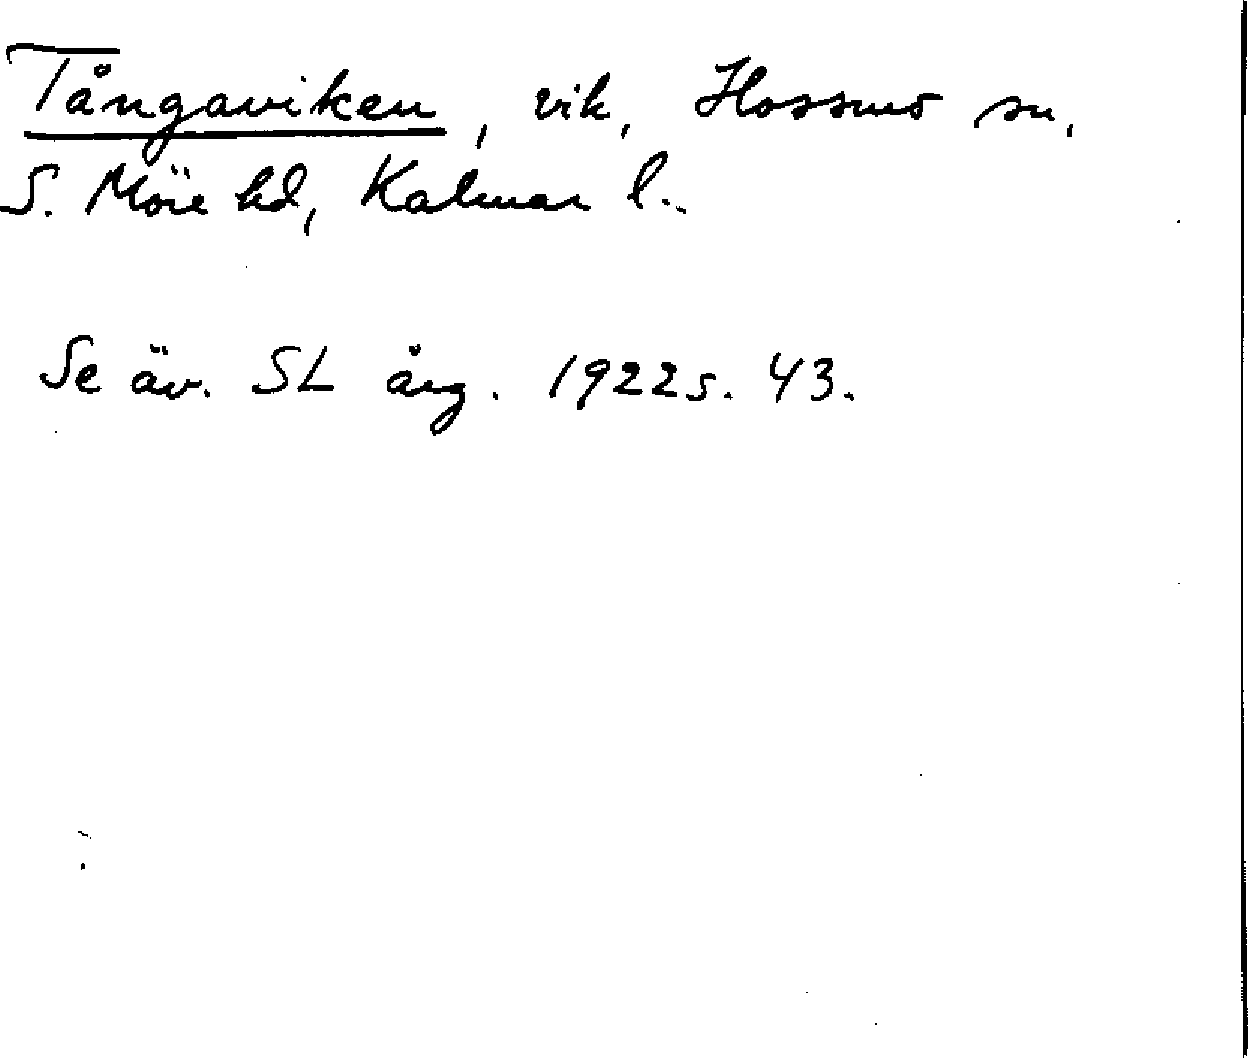 Tångaviken, vik, Hossmo sn,
S. Möre hd, Kalmar l..
Se äv. SL årg. 1922 s. 43.